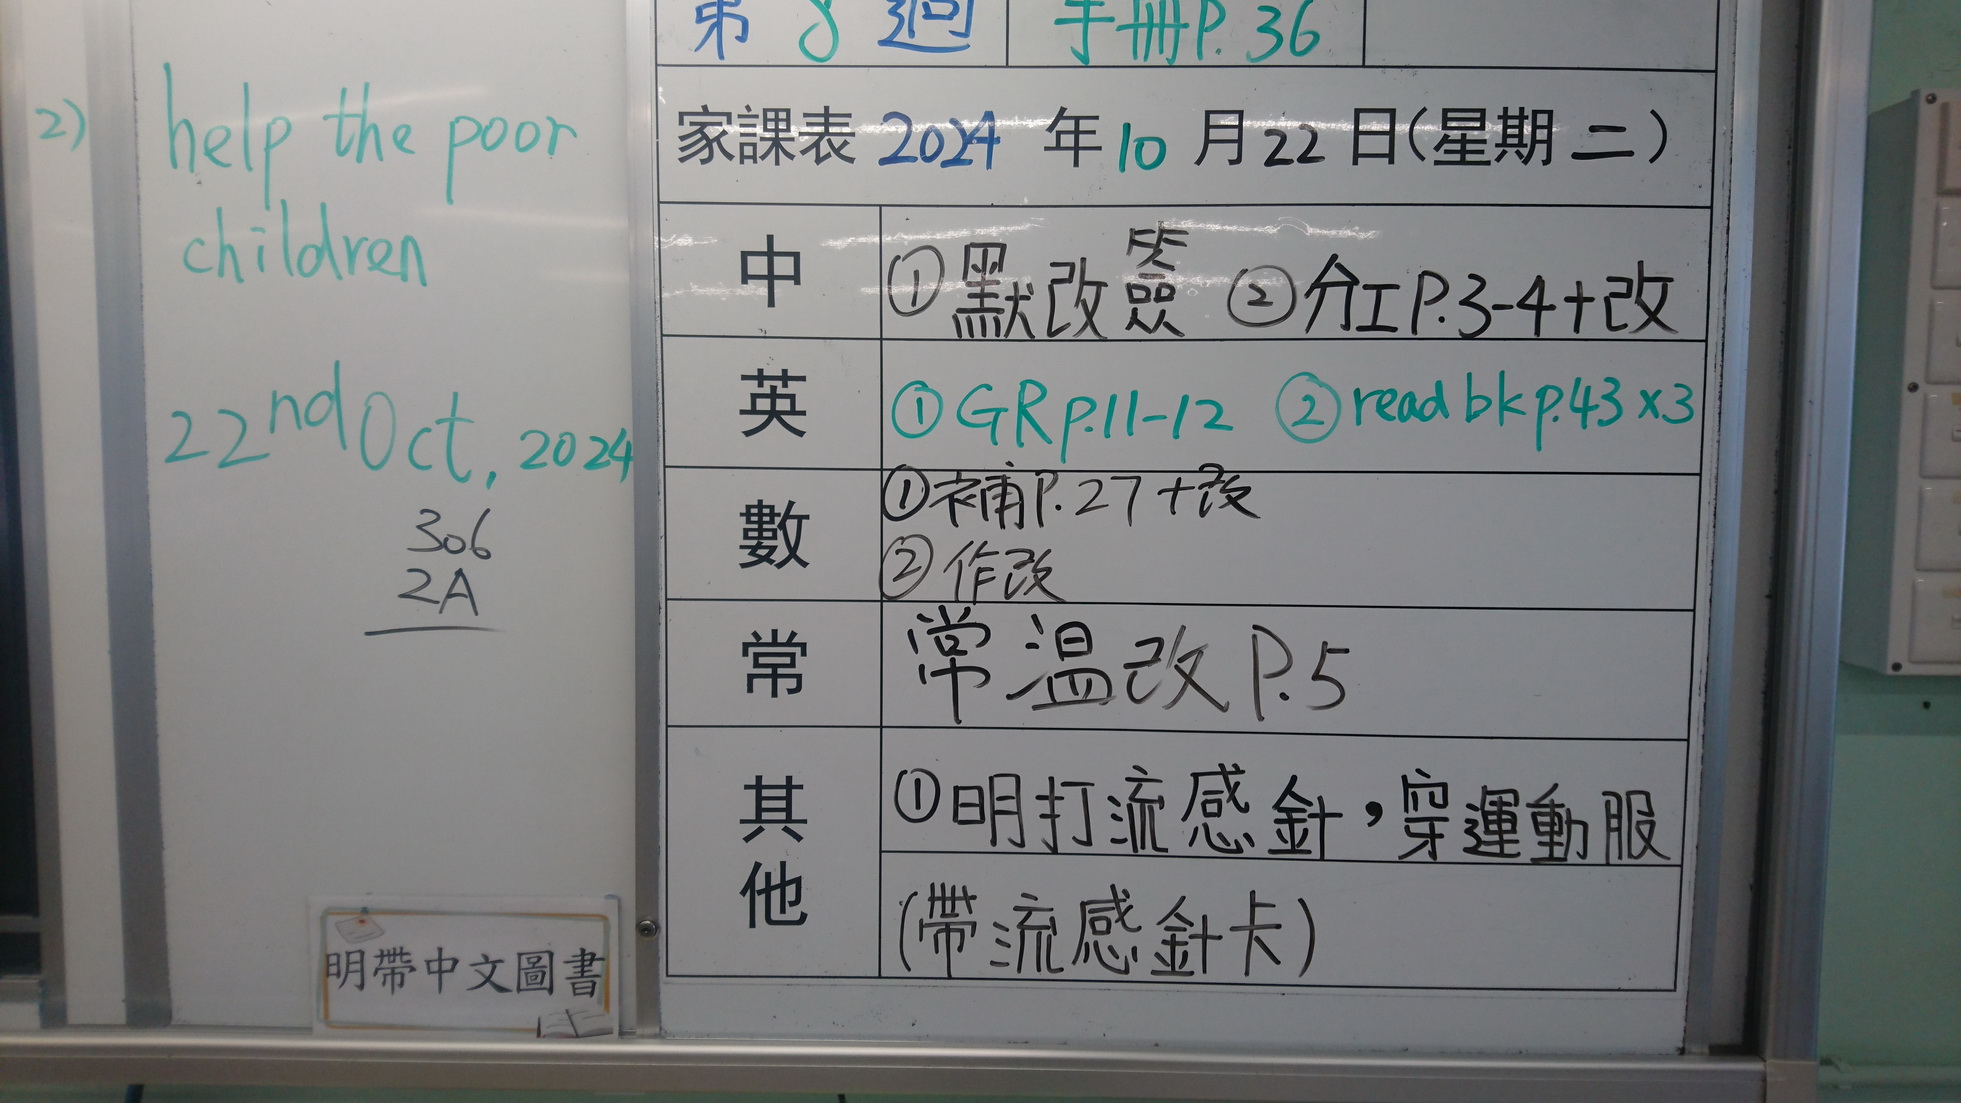 2) help the poor
children
22nd Oct, 2024
306
2A
明帶中文圖書
第 8 週 手冊P.36
家課表 2024 年 10 月 22 日(星期 二)
中 ①默改簽 ②分工P.3-4+改
英 ①GR p.11-12 ②read bk p.43 x3
數 ①補P.27+改
②作改
常 常溫改P.5
其他 ①明打流感針,穿運動服
(帶流感針卡)